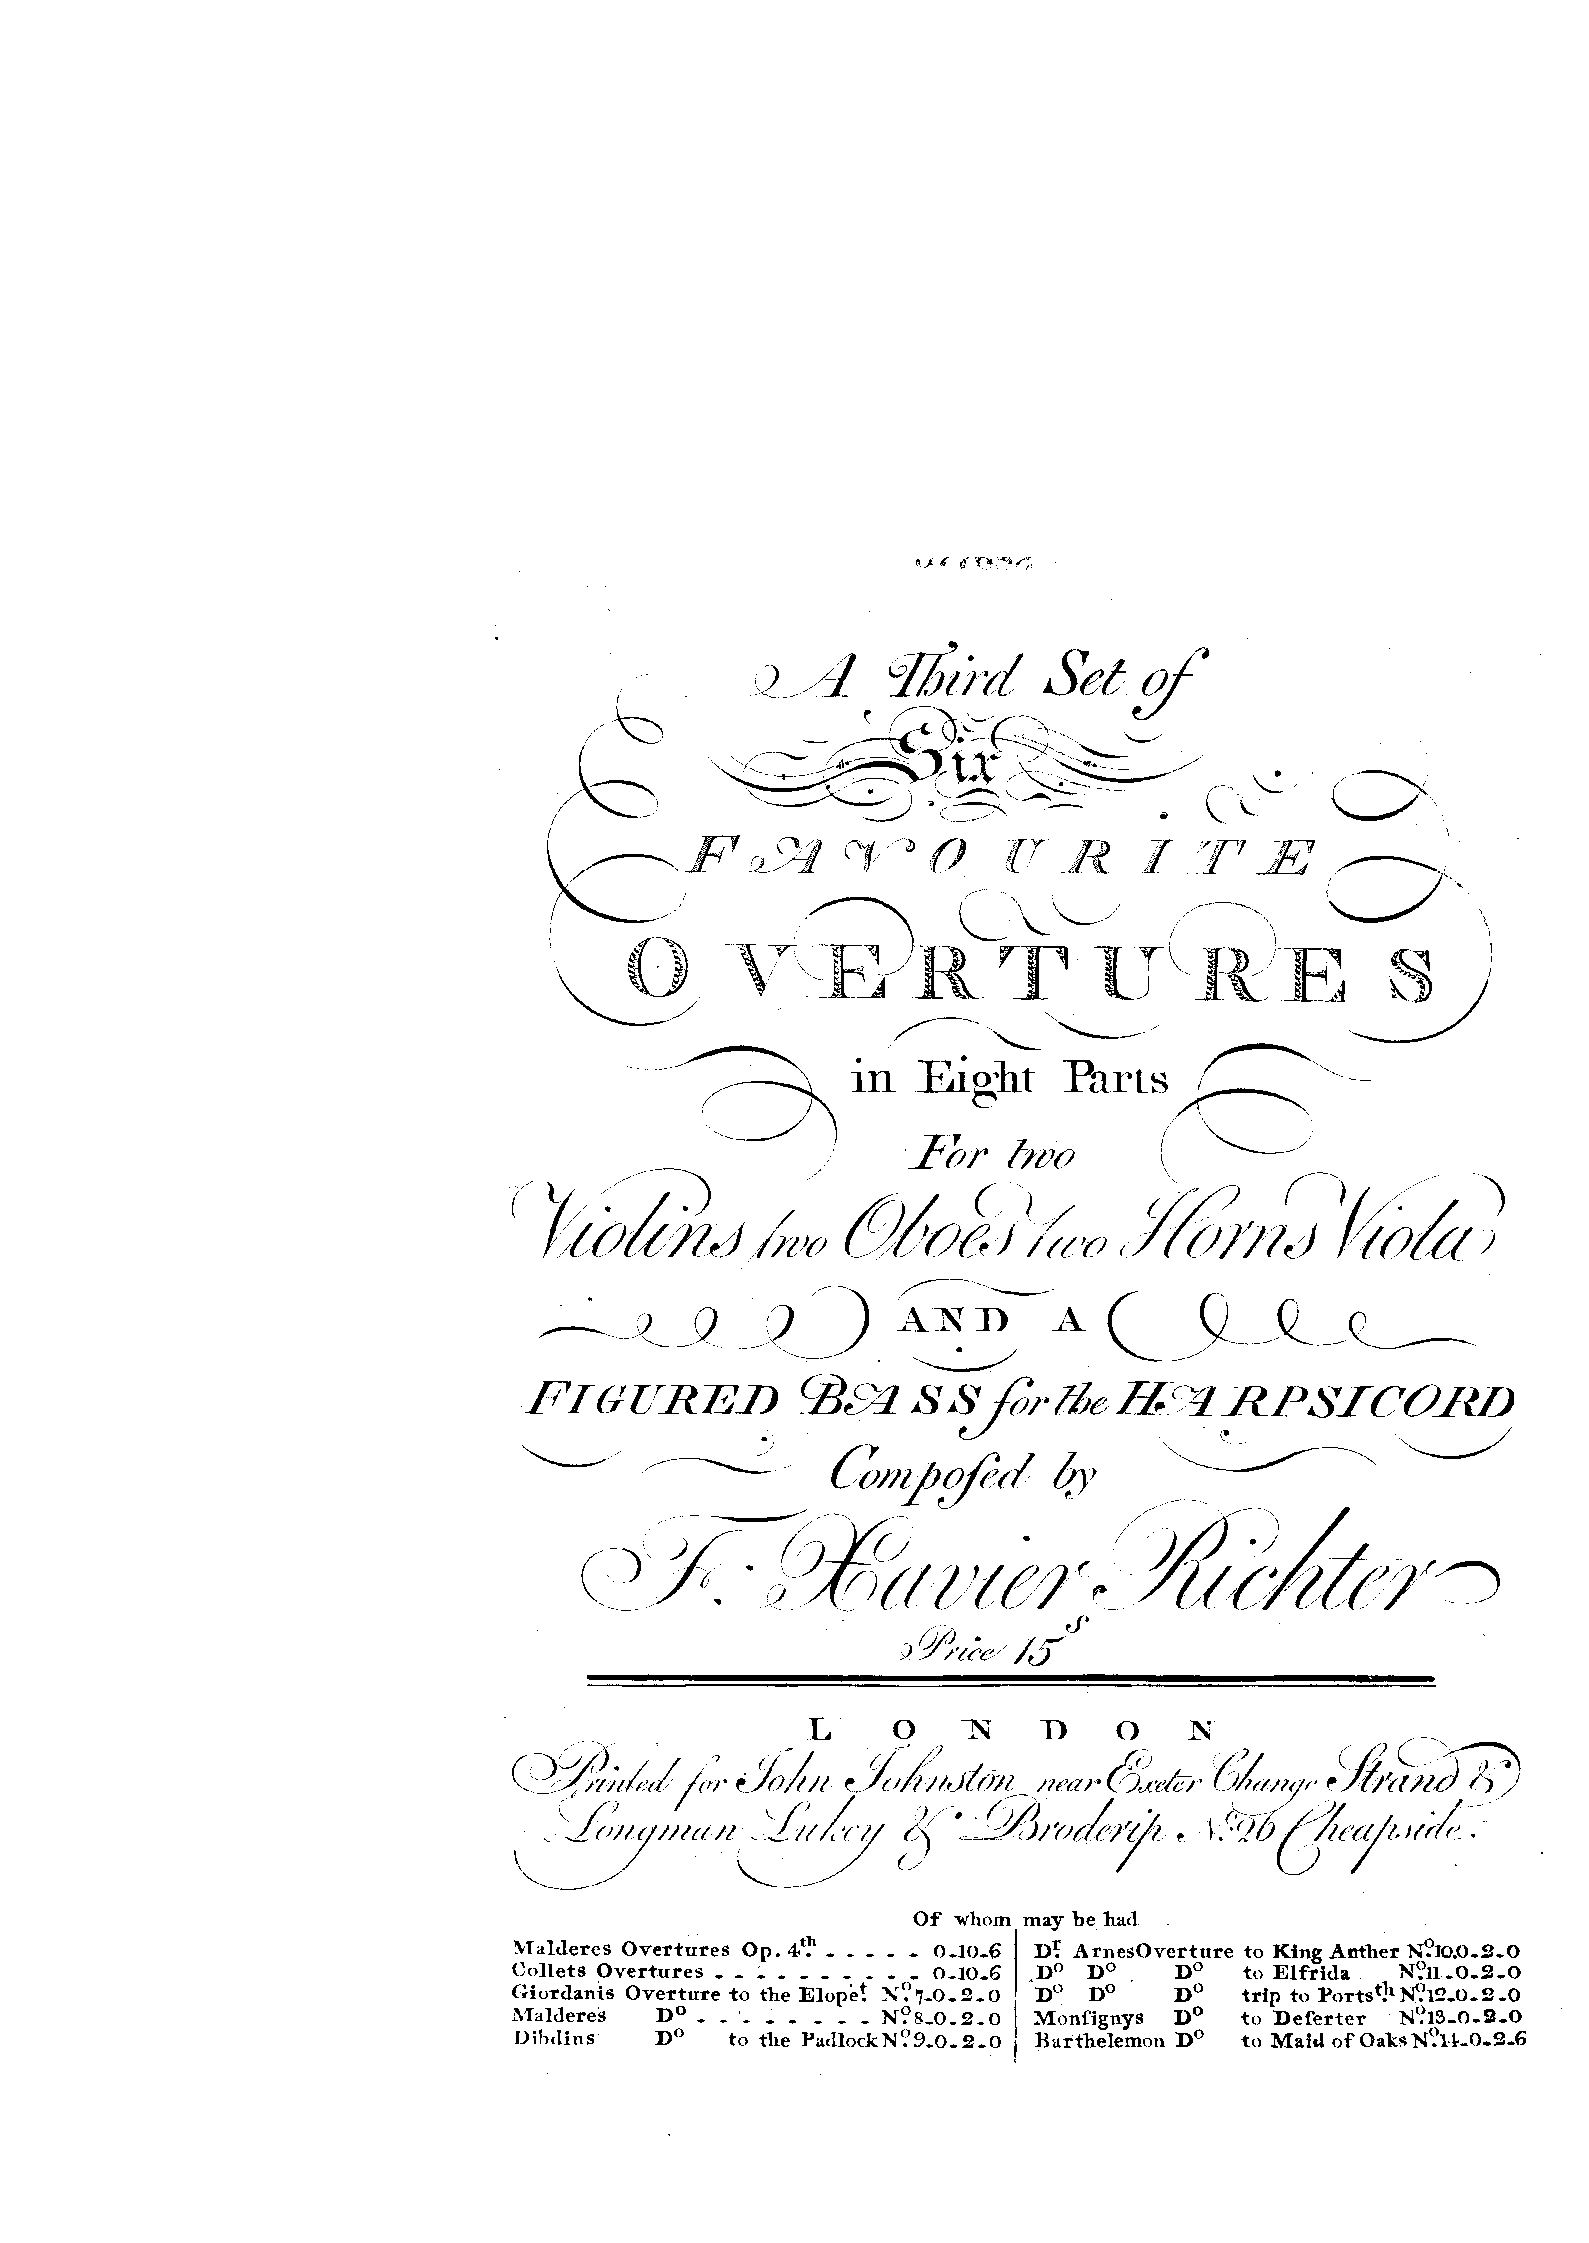 A Third Set of
Six
FAVOURITE
OVERTURES
in Eight Parts
For two
Violins two Oboes two Horns Viola
AND A
FIGURED BASS for the HARPSICORD
Compoſed by
F. Xavier Richter
Price 15s
LONDON
Printed for John Johnston near Exeter Change Strand &
Longman Lukey & Broderip No. 26 Cheapside.
Of whom may be had
Malderes Overtures Op. 4th. - - - - - 0-10-6
Collets Overtures - - - - - - - - - - 0-10-6
Giordanis Overture to the Elopet. No. 7-0-2-0
Malderes Do - - - - - - - - No. 8-0-2-0
Dibdins Do to the Padlock No. 9-0-2-0
Dr. Arnes Overture to King Anther No. 10.0-2-0
Do Do Do to Elfrida No. 11-0-2-0
Do Do Do trip to Portsth. No. 12-0-2-0
Monſignys Do to Deſerter No. 13-0-2-0
Barthelemon Do to Maid of Oaks No. 14-0-2-6